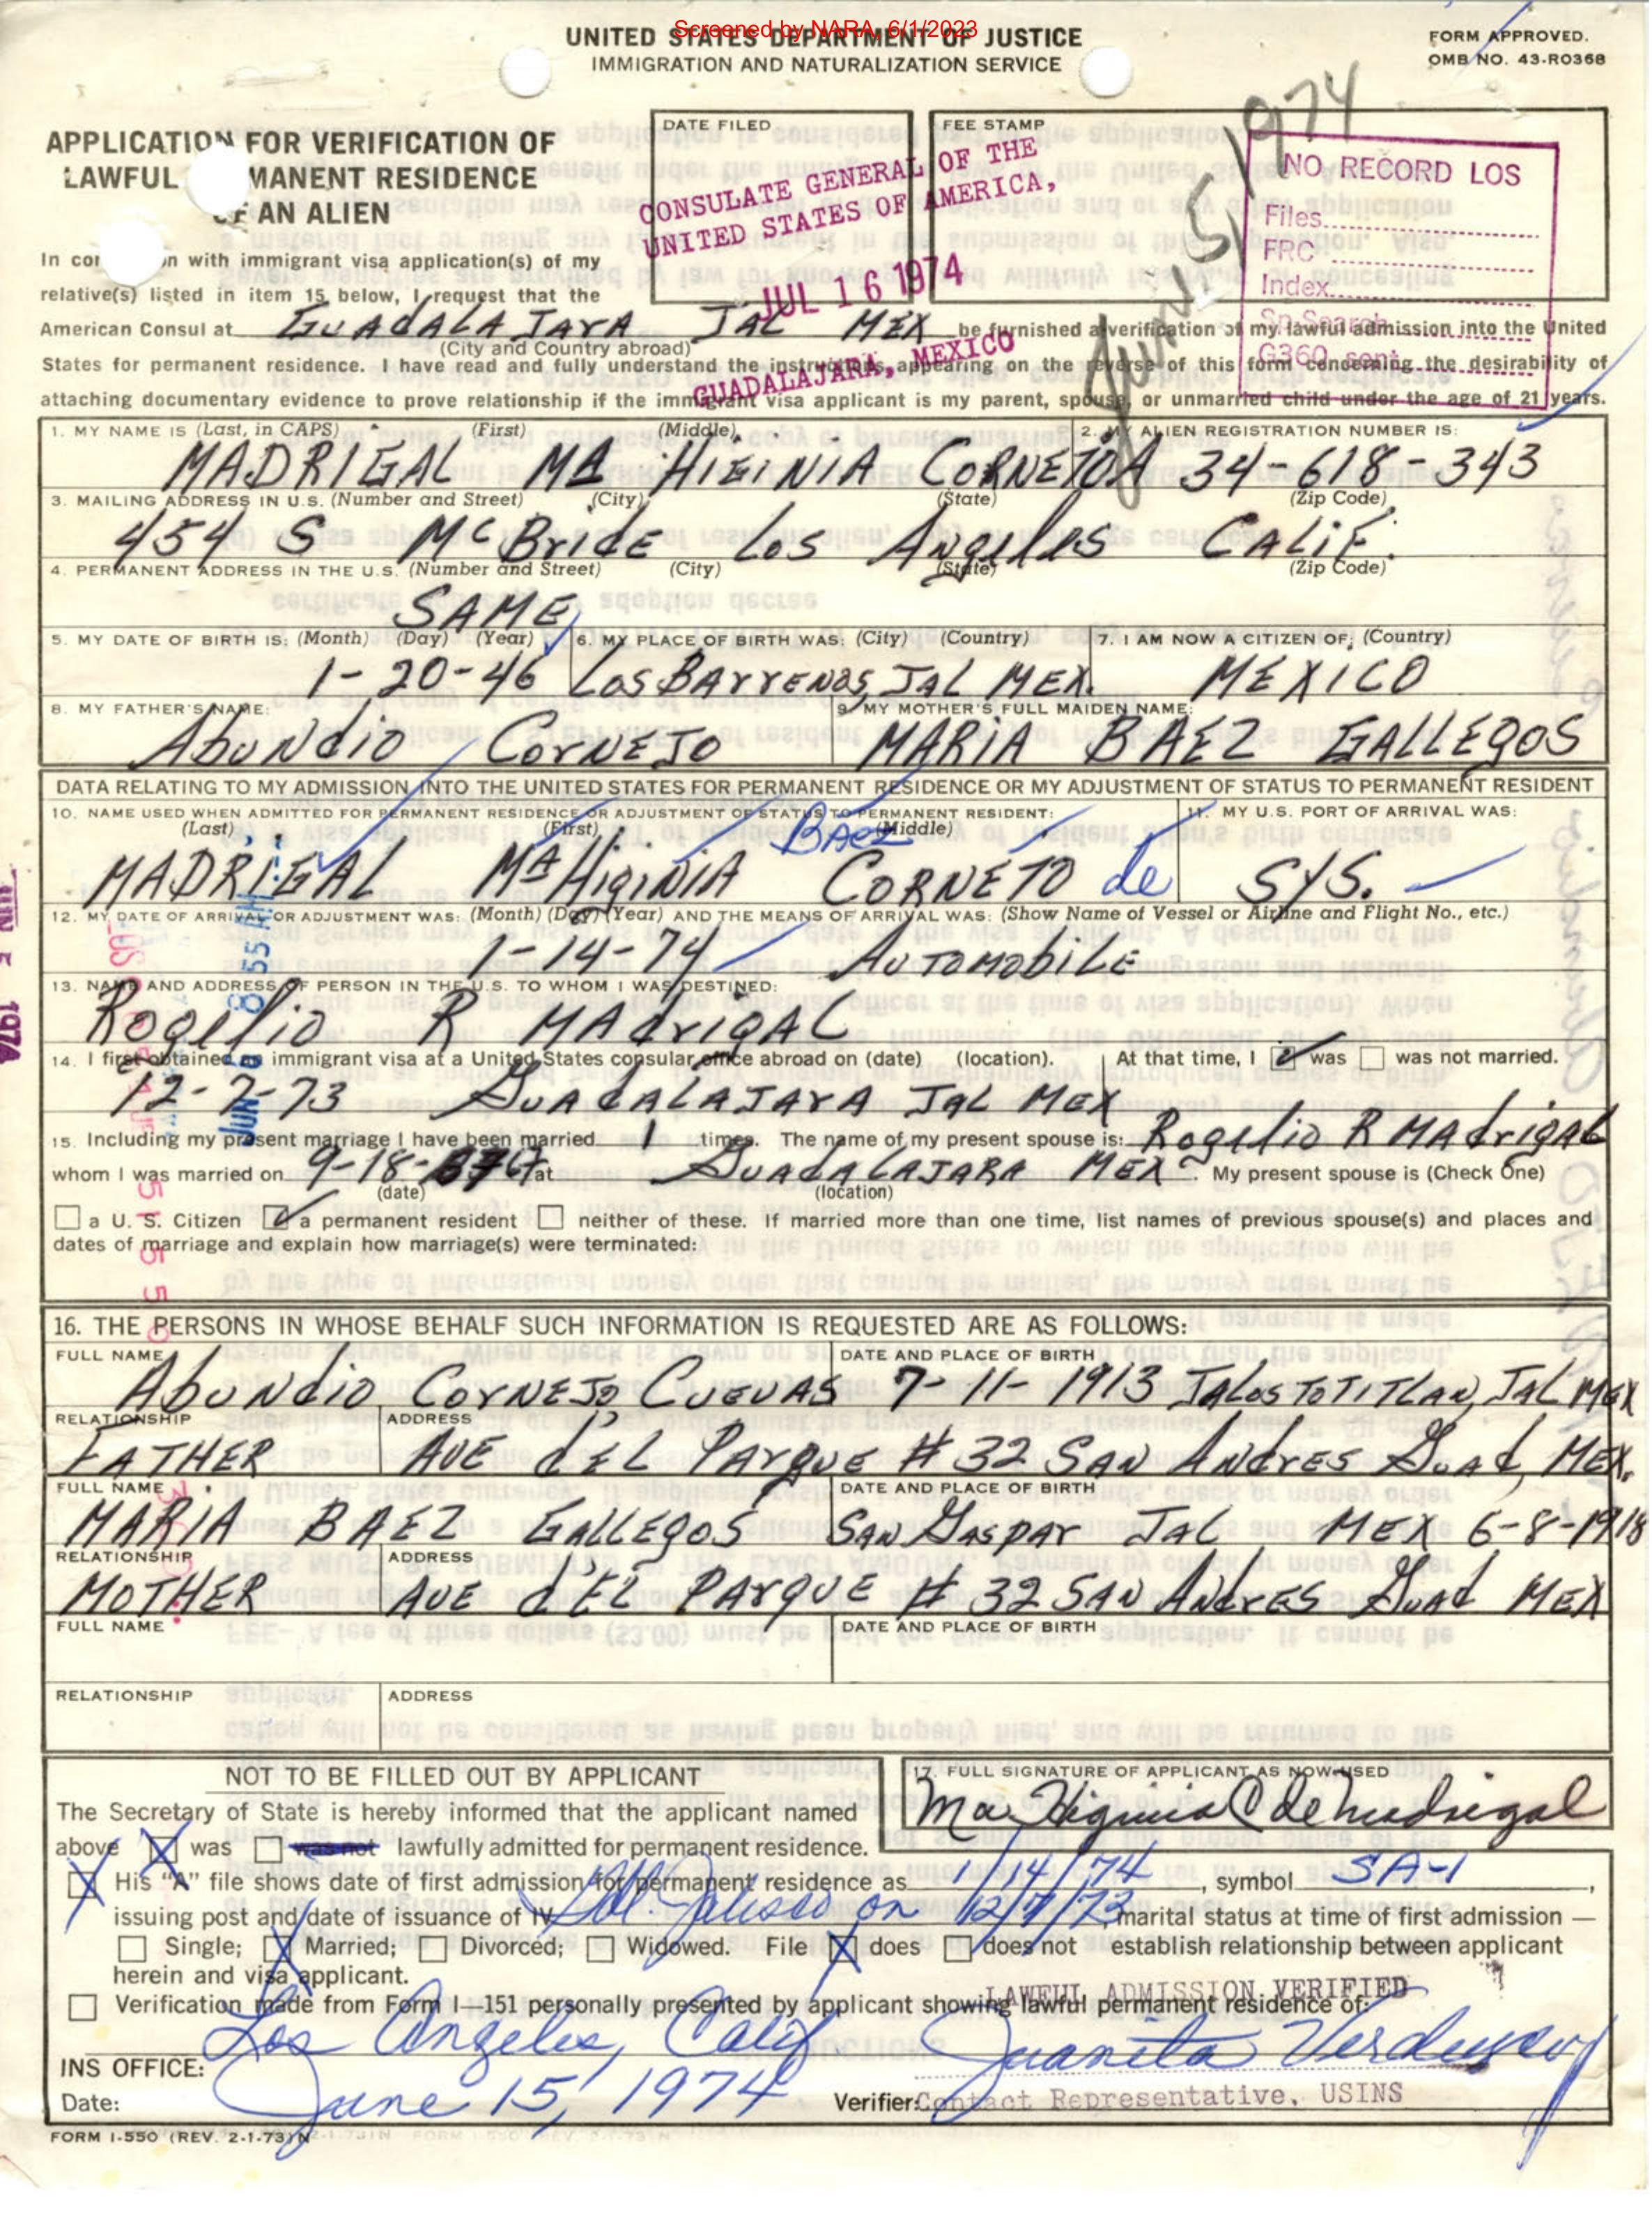 Screened by NARA, 6/1/2023
UNITED STATES DEPARTMENT OF JUSTICE
IMMIGRATION AND NATURALIZATION SERVICE
FORM APPROVED.
OMB NO. 43-R0368
APPLICATION FOR VERIFICATION OF
LAWFUL MANENT RESIDENCE
OF AN ALIEN
DATE FILED
FEE STAMP
CONSULATE GENERAL OF THE
UNITED STATES OF AMERICA,
JUL 16 1974
GUADALAJARA, MEXICO
June 5/1974
NO RECORD LOS
Files
FRC
Index
Sp Search
G360 sent
In con n with immigrant visa application(s) of my
relative(s) listed in item 15 below, I request that the
American Consul at GUAdALA JARA JAL MEX be furnished a verification of my lawful admission into the United
(City and Country abroad)
States for permanent residence. I have read and fully understand the instructions appearing on the reverse of this form concerning the desirability of
attaching documentary evidence to prove relationship if the immigrant visa applicant is my parent, spouse, or unmarried child under the age of 21 years.
1. MY NAME IS (Last, in CAPS) (First) (Middle) 2. MY ALIEN REGISTRATION NUMBER IS:
MADRIGAL MA HIGINIA CORNEJO A 34-618-343
3. MAILING ADDRESS IN U.S. (Number and Street) (City) (State) (Zip Code)
454 S McBride Los Angeles CALiF.
4. PERMANENT ADDRESS IN THE U.S. (Number and Street) (City) (State) (Zip Code)
SAME
5. MY DATE OF BIRTH IS: (Month) (Day) (Year) 6. MY PLACE OF BIRTH WAS: (City) (Country) 7. I AM NOW A CITIZEN OF; (Country)
1-20-46 Los BArrENOS, JAL MEX. MEXICO
8. MY FATHER'S NAME: 9. MY MOTHER'S FULL MAIDEN NAME:
Abundio CorNEJO MARIA BAEZ GALLEgOS
DATA RELATING TO MY ADMISSION INTO THE UNITED STATES FOR PERMANENT RESIDENCE OR MY ADJUSTMENT OF STATUS TO PERMANENT RESIDENT
10. NAME USED WHEN ADMITTED FOR PERMANENT RESIDENCE OR ADJUSTMENT OF STATUS TO PERMANENT RESIDENT: 11. MY U.S. PORT OF ARRIVAL WAS:
(Last) (First) (Middle)
BAez
MADRIGAL MA HiginiA CORNEJO de SYS.
12. MY DATE OF ARRIVAL OR ADJUSTMENT WAS: (Month) (Day) (Year) AND THE MEANS OF ARRIVAL WAS: (Show Name of Vessel or Airline and Flight No., etc.)
1-14-74 AUTOMObiLE
13. NAME AND ADDRESS OF PERSON IN THE U.S. TO WHOM I WAS DESTINED:
Rogelio R MAdrigAL
14. I first obtained an immigrant visa at a United States consular office abroad on (date) (location). At that time, I was was not married.
12-7-73 GUAdALAJArA JAL MEX
15. Including my present marriage I have been married 1 times. The name of my present spouse is: Rogelio R MAdrigAL
whom I was married on 9-18- 67 at GUAdALAJARA MEX. My present spouse is (Check One)
(date) (location)
a U. S. Citizen a permanent resident neither of these. If married more than one time, list names of previous spouse(s) and places and
dates of marriage and explain how marriage(s) were terminated:
JUN 6 8 55 AM
JUN 5 1974
16. THE PERSONS IN WHOSE BEHALF SUCH INFORMATION IS REQUESTED ARE AS FOLLOWS:
FULL NAME DATE AND PLACE OF BIRTH
Abundio CorNEJO CUEVAS 7-11-1913 JALosTOTITLAN, JAL MEX
RELATIONSHIP ADDRESS
FATHER AVE dEL PArque # 32 SAN ANdrES Guad, MEX.
FULL NAME DATE AND PLACE OF BIRTH
MARIA BAEZ GALLEGOS SAN GAspAr JAL MEX 6-8-1918
RELATIONSHIP ADDRESS
MOTHER AVE d'EL PArQUE # 32 SAN ANdrES Guad MEX
FULL NAME DATE AND PLACE OF BIRTH
RELATIONSHIP ADDRESS
NOT TO BE FILLED OUT BY APPLICANT
17. FULL SIGNATURE OF APPLICANT AS NOW USED
Ma. Higinia C de Madrigal
The Secretary of State is hereby informed that the applicant named
above was was not lawfully admitted for permanent residence.
His "A" file shows date of first admission for permanent residence as 1/14/74, symbol SA-1,
issuing post and date of issuance of IV Gdl. Jalisco on 12/7/73 marital status at time of first admission —
Single; Married; Divorced; Widowed. File does does not establish relationship between applicant
herein and visa applicant.
LAWFUL ADMISSION VERIFIED
Verification made from Form I-151 personally presented by applicant showing lawful permanent residence of:
INS OFFICE: Los Angeles, Calif Juanita Verdusco
Date: June 15, 1974 Verifier: Contact Representative, USINS
FORM I-550 (REV. 2-1-73)N